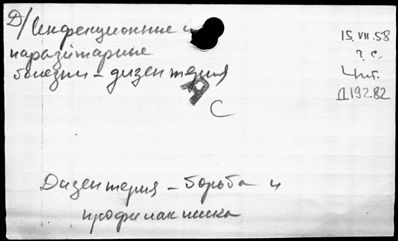 Д/Инфекционные и
паразитарные
болезни – дизентерия
С
15.VII.58
? с.
Чит.
Д19282
Дизентерия – борьба и
профилактика